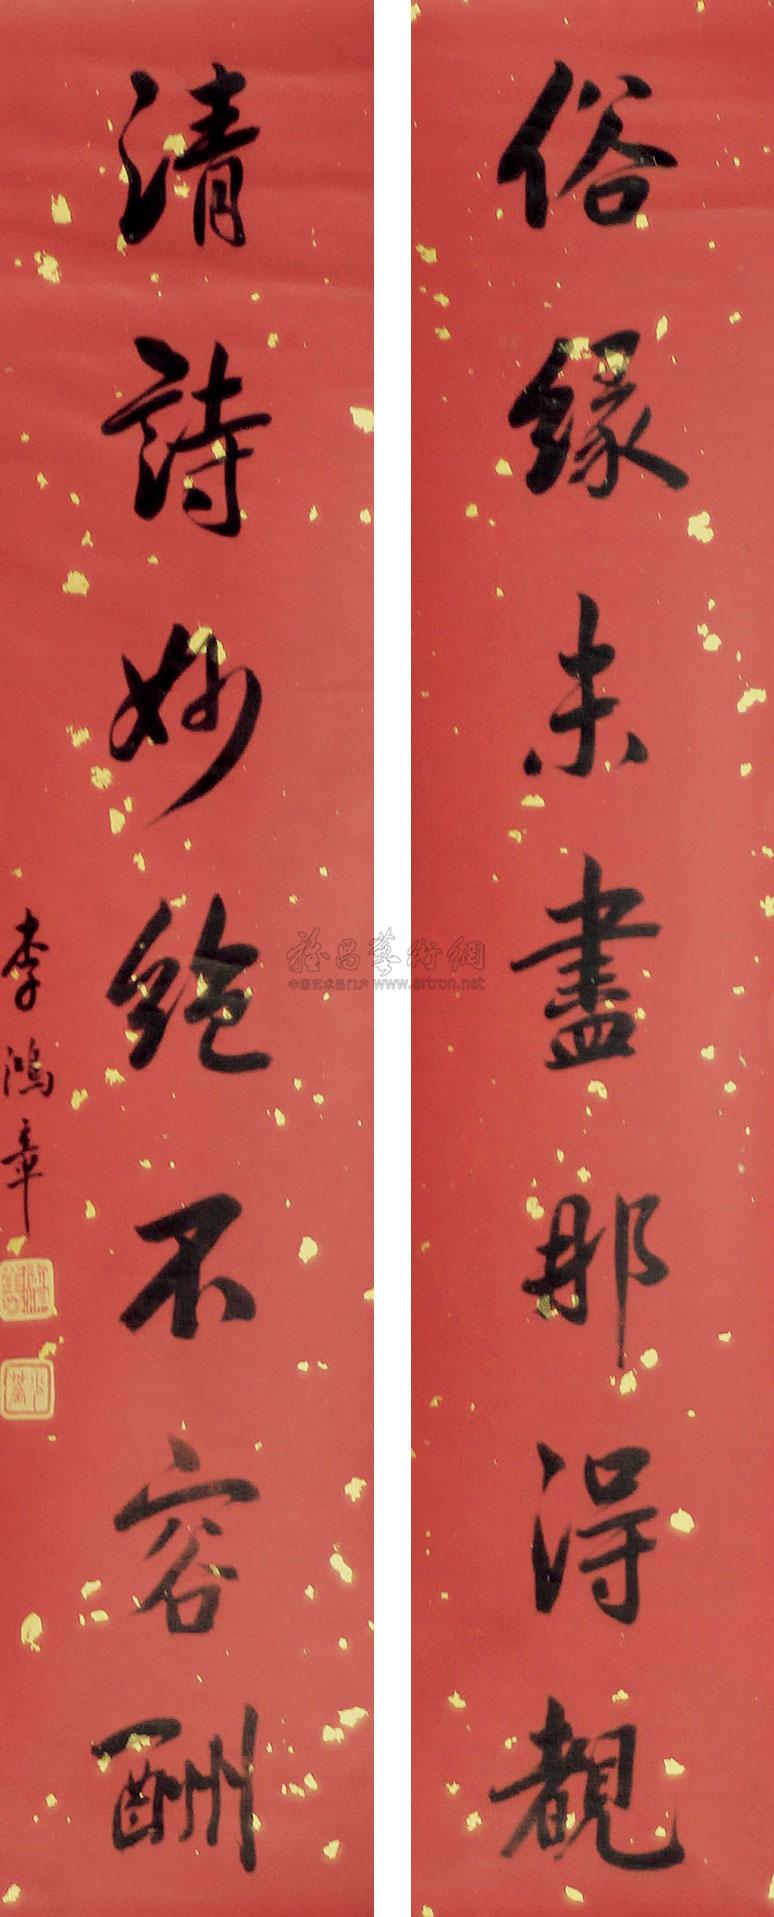 俗緣未盡那得覩
清詩妙絕不容酬
李鴻章
雅昌藝術網
中国艺术品门户 www.artron.net